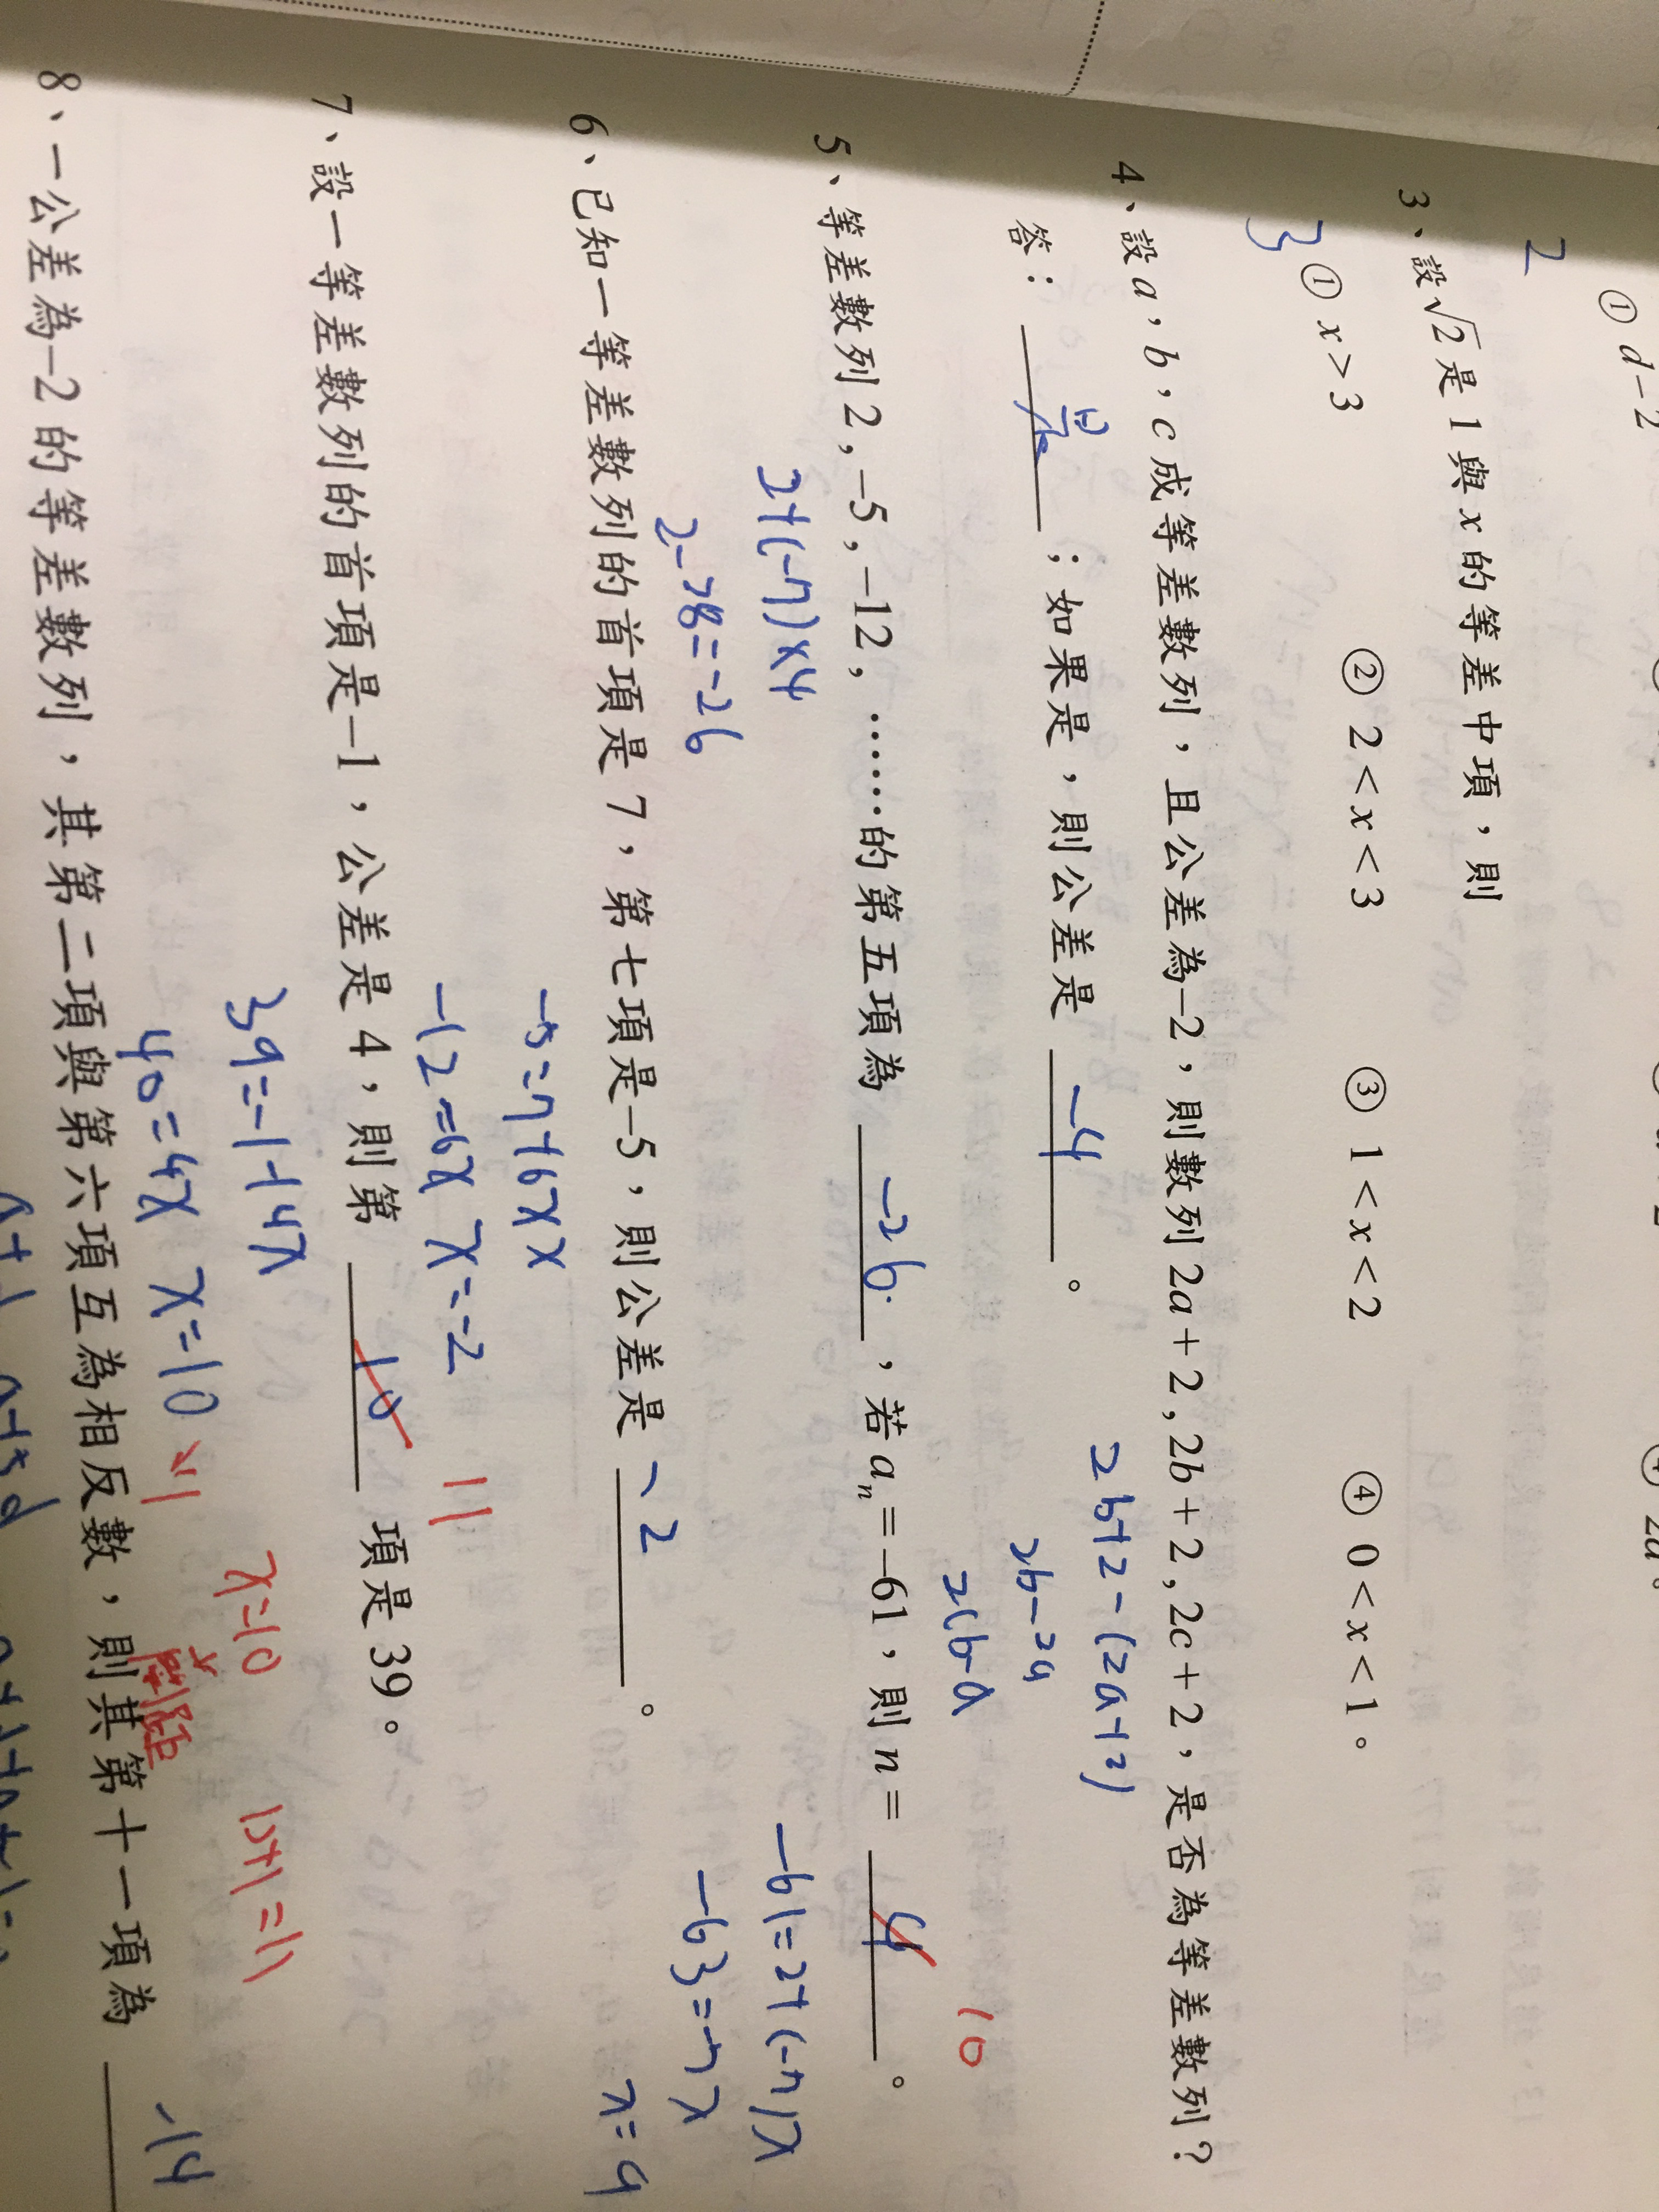 ① d-2
2
3、設√2是1與x的等差中項，則
3 ① x>3 ② 2<x<3 ③ 1<x<2 ④ 0<x<1。
4、設a，b，c成等差數列，且公差為-2，則數列2a+2,2b+2,2c+2，是否為等差數列？
2b+2-(2a+2)
答：是；如果是，則公差是 -4。
2b-2a
2(b-a
10
5、等差數列2，-5，-12，……的第五項為 -26，若aₙ=-61，則n= 9。
2+(-7)×4
-61=2+(-7)x
2-28=-26
-63=-7x
x=9
6、已知一等差數列的首項是7，第七項是-5，則公差是 -2。
-5=7+6x x
-12=6x x=-2
11
7、設一等差數列的首項是-1，公差是4，則第 10 項是39。
39=-1+4x
x=10
10+1=11
40=4x x=10
-14
8、一公差為-2的等差數列，其第二項與第六項互為相反數，則其第十一項為
a+d a+5d